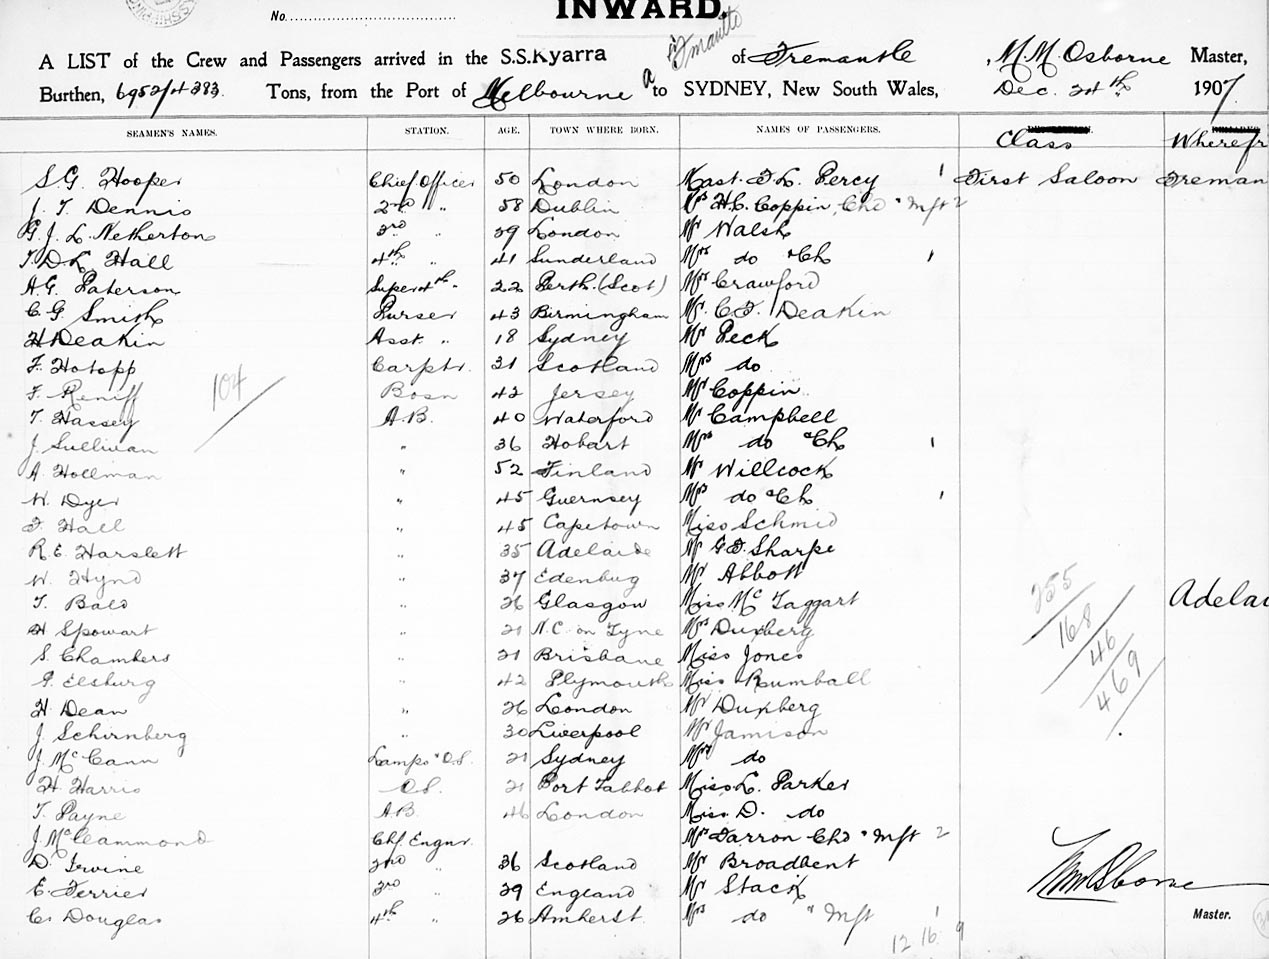 INWARD.
No.
A LIST of the Crew and Passengers arrived in the S.S. Kyarra of Fremantle M. M. Osborne Master,
Burthen, 6952/4383 Tons, from the Port of Melbourne to SYDNEY, New South Wales, Dec. 24th 1907.
SEAMEN'S NAMES. STATION. AGE. TOWN WHERE BORN. NAMES OF PASSENGERS. Class Wherefr
S. G. Hooper Chief Officer 50 London Mast. F. L. Percy 1 First Saloon Freman
J. T. Dennis 2nd " 58 Dublin Mrs H. C. Coppin, Chd & Inft 2
G. J. L. Netherton 3rd " 29 London Mr Walsh
T. D. L. Hall 4th " 41 Sunderland Mrs do & Ch 1
A. G. Paterson Super 4th " 22 Perth (Scot) Mrs Crawford
C. G. Smith Purser 43 Birmingham Mr. C. F. Deakin
H Deakin Asst. " 18 Sydney Mr Peck
F. Hotopp Carptr. 31 Scotland Mrs do
F. Reniff Bosn 42 Jersey Mr Coppin
104
T. Hassey A.B. 40 Waterford Mr Campbell
J. Sullivan " 36 Hobart Mrs do & Ch 1
A. Hollman " 52 Finland Mr Willcock
W. Dyer " 45 Guernsey Mrs do & Ch 1
F. Hall " 45 Capetown Miss Schmid
R. E. Harslett " 35 Adelaide Mr G. F. Sharpe
W. Hynd " 37 Edenbug Mr Abbott
T. Bald " 26 Glasgow Miss Mc Taggart Adelai
255
H Spowart " 21 N.C. on Tyne Mrs Duxberg
168
S. Chambers " 21 Brisbane Miss Jones
46
P. Elsburg " 42 Plymouth Miss Rumball
469
H. Dean " 26 London Mr Duxberg
J. Schirnberg " 30 Liverpool Mr Jamison
J. Mc Cann Lamps & O.S. 21 Sydney Mrs do
H Harris O.S. 21 Port Talbot Miss L. Parker
T. Payne A.B. 46 London Miss. D. do
J. McCammond Chf. Engnr. Mrs Darron Chd & Inft 2
D. Irwine 2nd " 36 Scotland Mr Broadbent
E. Ferrier 3rd " 29 England Mr Stack
C. Douglas 4th " 26 Amherst Mrs do " Inft 1
Master.
12 16 9